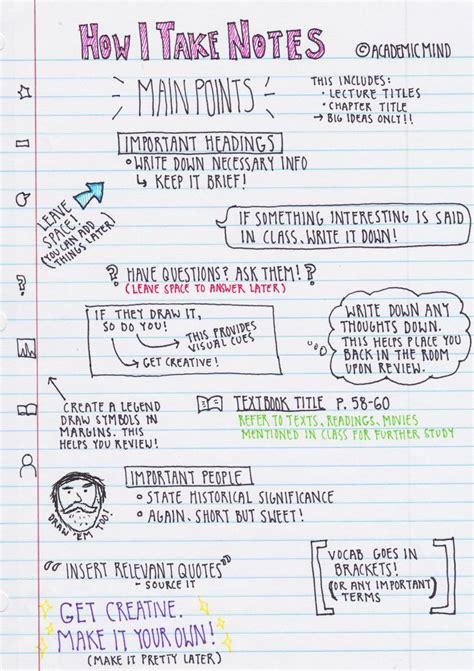 HOW I TAKE NOTES
©ACADEMICMIND
MAIN POINTS
THIS INCLUDES:
• LECTURE TITLES
• CHAPTER TITLE
→ BIG IDEAS ONLY!!
IMPORTANT HEADINGS
• WRITE DOWN NECESSARY INFO
↳ KEEP IT BRIEF!
LEAVE
SPACE!
(YOU CAN ADD
THINGS LATER)
IF SOMETHING INTERESTING IS SAID
IN CLASS, WRITE IT DOWN!
? HAVE QUESTIONS? ASK THEM! ?
(LEAVE SPACE TO ANSWER LATER)
IF THEY DRAW IT,
SO DO YOU!
THIS PROVIDES
VISUAL CUES
GET CREATIVE!
WRITE DOWN ANY
THOUGHTS DOWN.
THIS HELPS PLACE YOU
BACK IN THE ROOM
UPON REVIEW.
CREATE A LEGEND
DRAW SYMBOLS IN
MARGINS. THIS
HELPS YOU REVIEW!
TEXTBOOK TITLE P. 58-60
REFER TO TEXTS, READINGS, MOVIES
MENTIONED IN CLASS FOR FURTHER STUDY
IMPORTANT PEOPLE
• STATE HISTORICAL SIGNIFICANCE
• AGAIN, SHORT BUT SWEET!
DRAW 'EM TOO!
"INSERT RELEVANT QUOTES"
- SOURCE IT
[VOCAB GOES IN
BRACKETS!
(OR ANY IMPORTANT)
TERMS]
GET CREATIVE.
MAKE IT YOUR OWN!
(MAKE IT PRETTY LATER)